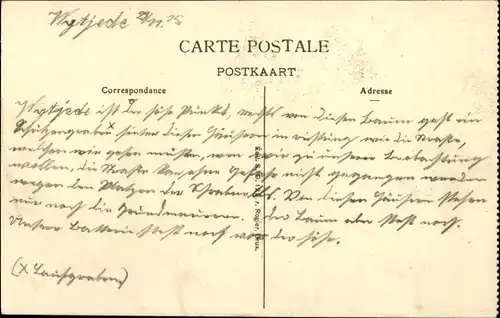 Wytjede 24/11. 15
CARTE POSTALE
POSTKAART
Correspondance
Adresse
Wytjede ist der Punkt, rechts von diesem Baum geht ein
Schützengraben hinter diesen Häusern in richtung wie die Straße,
welchen wir gehen mußten, wenn wir zu unserer Beobachtung
wollen, die Straße konnte ohne Gefahr nicht gegangen werden
wegen den Platzen der Schrapnells. Von diesen Häusern stehen
nur noch die Grundmauern. Der Baum aber steht noch.
Unsere Batterie steht noch vor der Höhe.
(X Laufgraben)